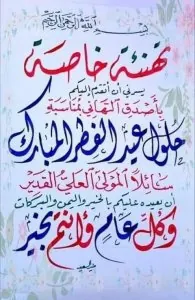 بسم الله الرحمن الرحيم
تهنئة خاصة
يسرني أن أتقدم إليكم
بأصدق التهاني بمناسبة
حلول عيد الفطر المبارك
سائلا المولى العلي القدير
أن يعيده عليكم بالخير واليمن والبركات
وكل عام وانتم بخير